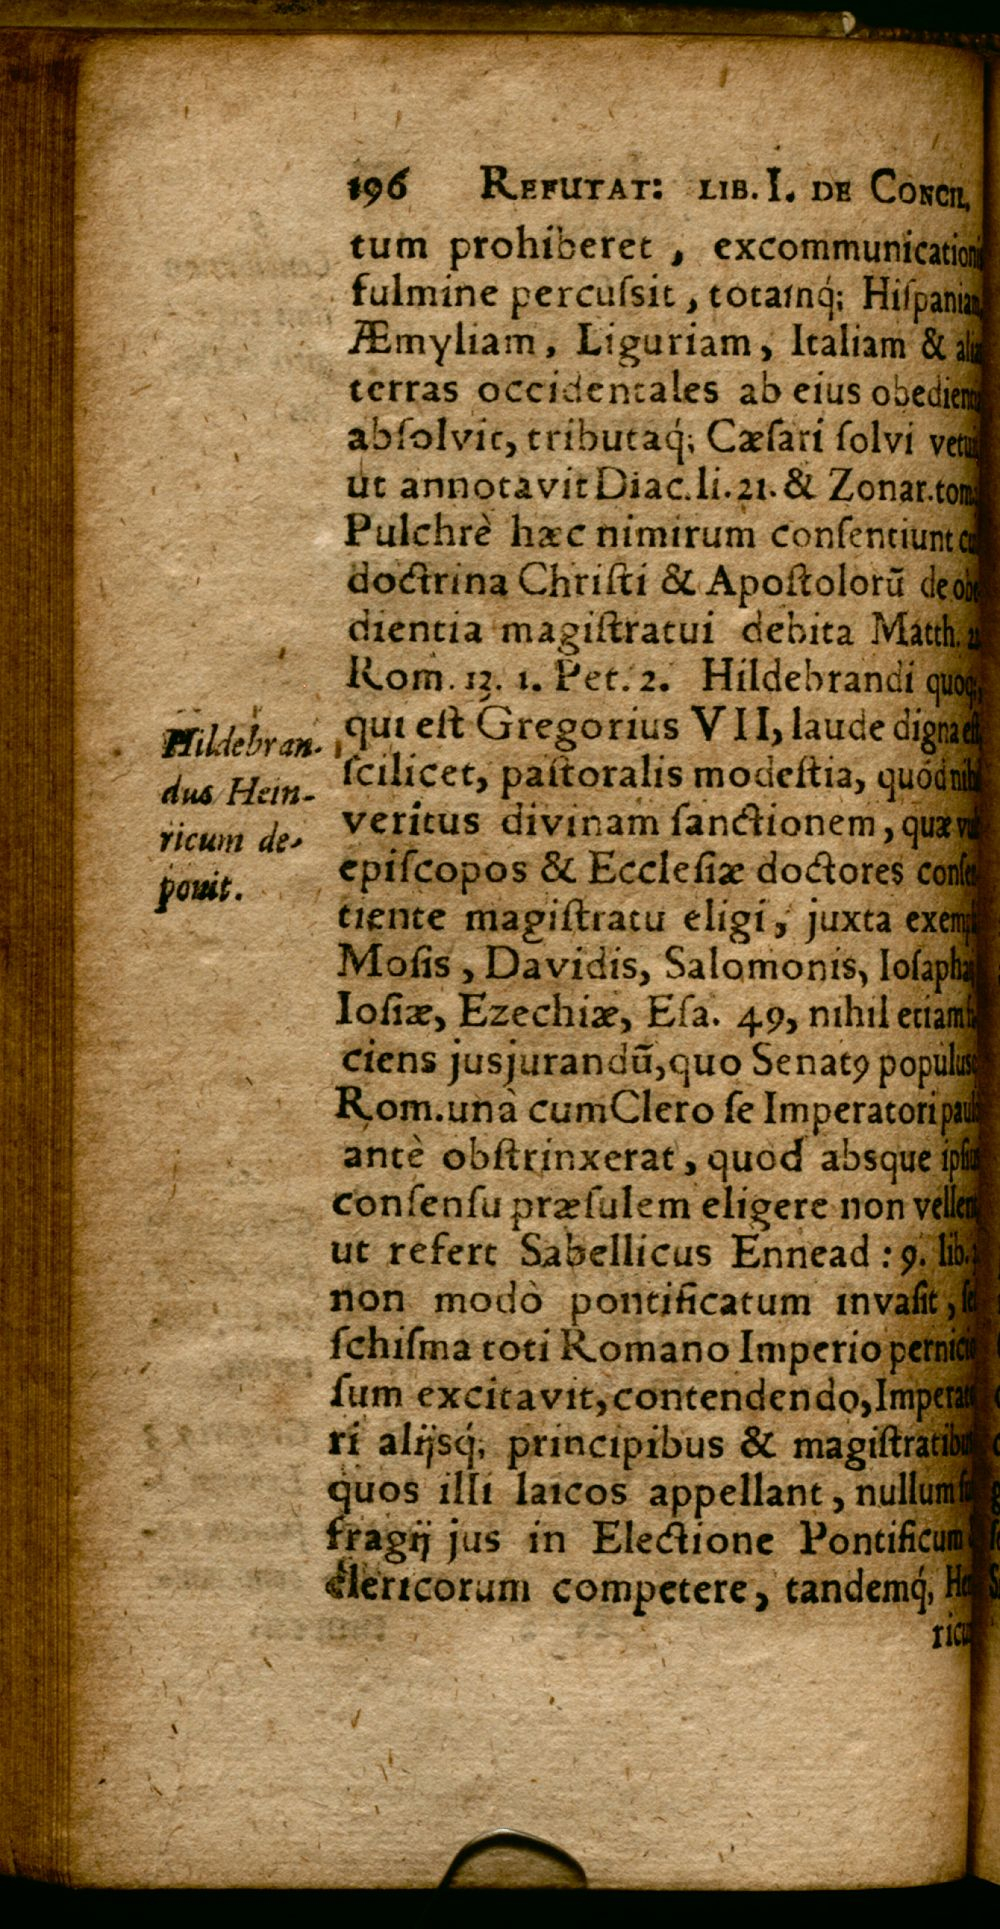 196 REFUTAT: LIB. I. DE CONCIL.
tum prohiberet, excommunicationis
fulmine percuſsit, totamq́; Hiſpaniam,
Æmyliam, Liguriam, Italiam &
terras occidentales ab eius
abſolvit, tributaq́; Cæſari ſolvi
ut annotavit Diac. li. 21. & Zonar. tom.
Pulchrè hæc nimirum conſentiunt
doctrina Chriſti & Apoſtolorũ de obe
dientia magiſtratui debita Matth.
Rom. 13. 1. Pet. 2. Hildebrandi quoq;,
qui eſt Gregorius VII, laude digna eſt
ſcilicet, paſtoralis modeſtia, quòd nihil
veritus divinam ſanctionem, quæ vult
epiſcopos & Eccleſiæ doctores conſen-
tiente magiſtratu eligi, juxta
Moſis, Davidis, Salomonis, Ioſaphat,
Ioſiæ, Ezechiæ, Eſa. 49, nihil etiam fa-
ciens jusjurandũ, quo Senatꝰ populusq́;
Rom. unà cum Clero ſe Imperatori paulò
antè obſtrinxerat, quod absque ipſius
conſenſu præſulem eligere non vellent,
ut refert Sabellicus Ennead: 9. lib.
non modò pontificatum invaſit, ſed
ſchiſma toti Romano Imperio pernicio
ſum excitavit, contendendo, Imperato
ri alijsq́; principibus & magiſtratibus
quos illi laicos appellant, nullum ſuf
fragij jus in Electione Pontificum &
clericorum competere, tandemq́; Hen
ricum
Hildebran-
dus Hein-
ricum de-
ponit.